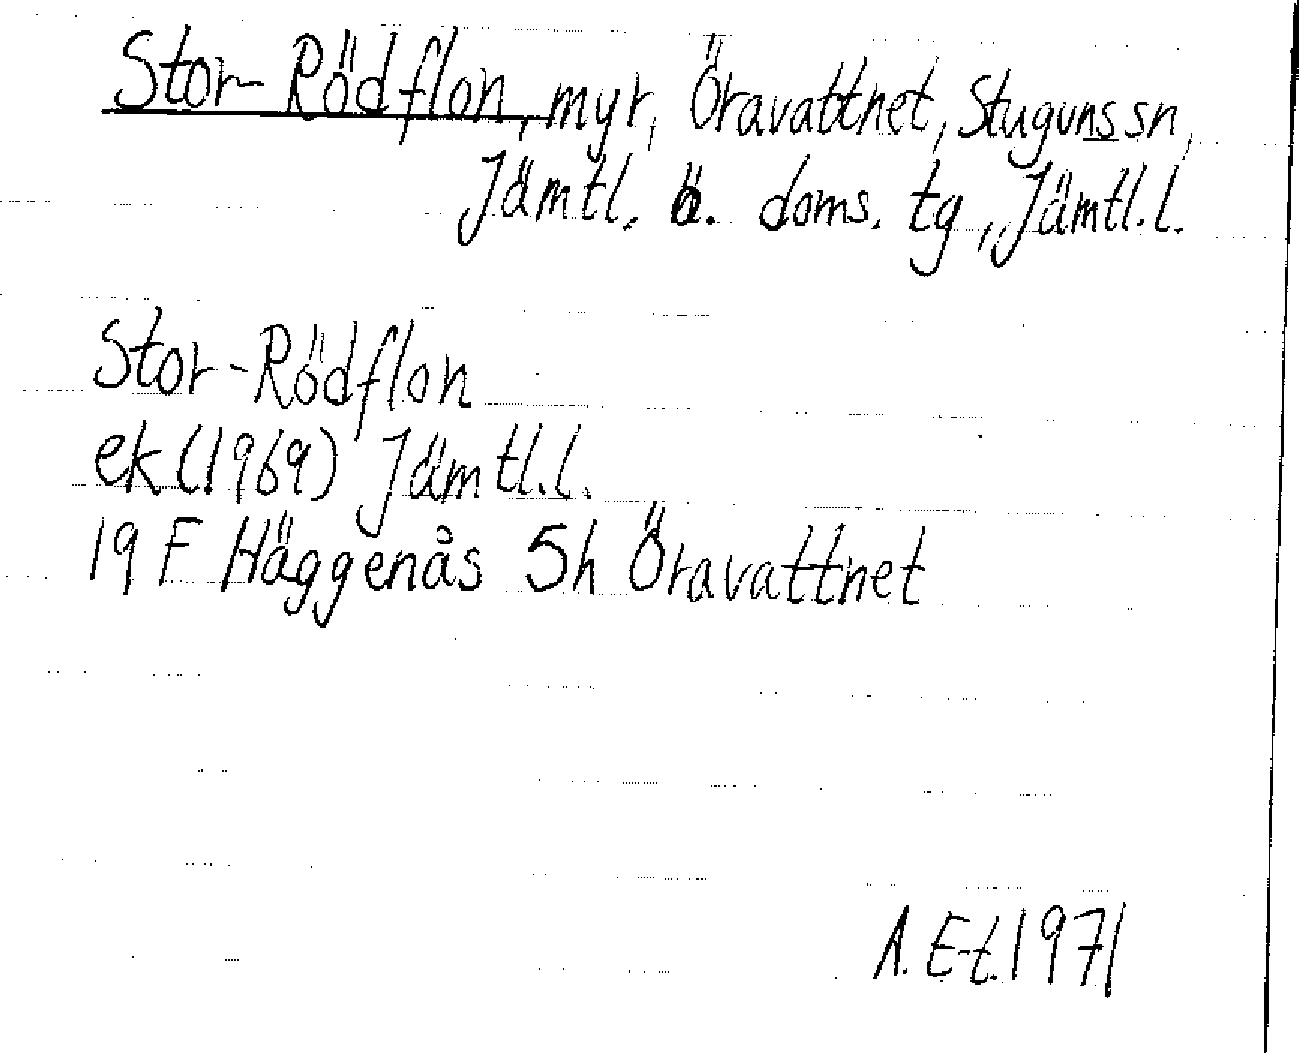 Stor-Rödflon, myr, Öravattnet, Stuguns sn,
Jämtl. ö. doms. tg, Jämtl. l.
Stor-Rödflon
ek (1969) Jämtl. l.
19 F Häggenås 5h Öravattnet
A. E-t. 1971